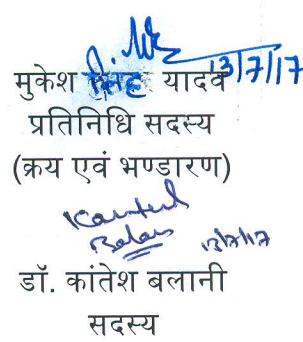 13/7/17
मुकेश सिंह यादव
प्रतिनिधि सदस्य
(क्रय एवं भण्डारण)
Kantesh
Balani
13/7/17
डॉ. कांतेश बलानी
सदस्य